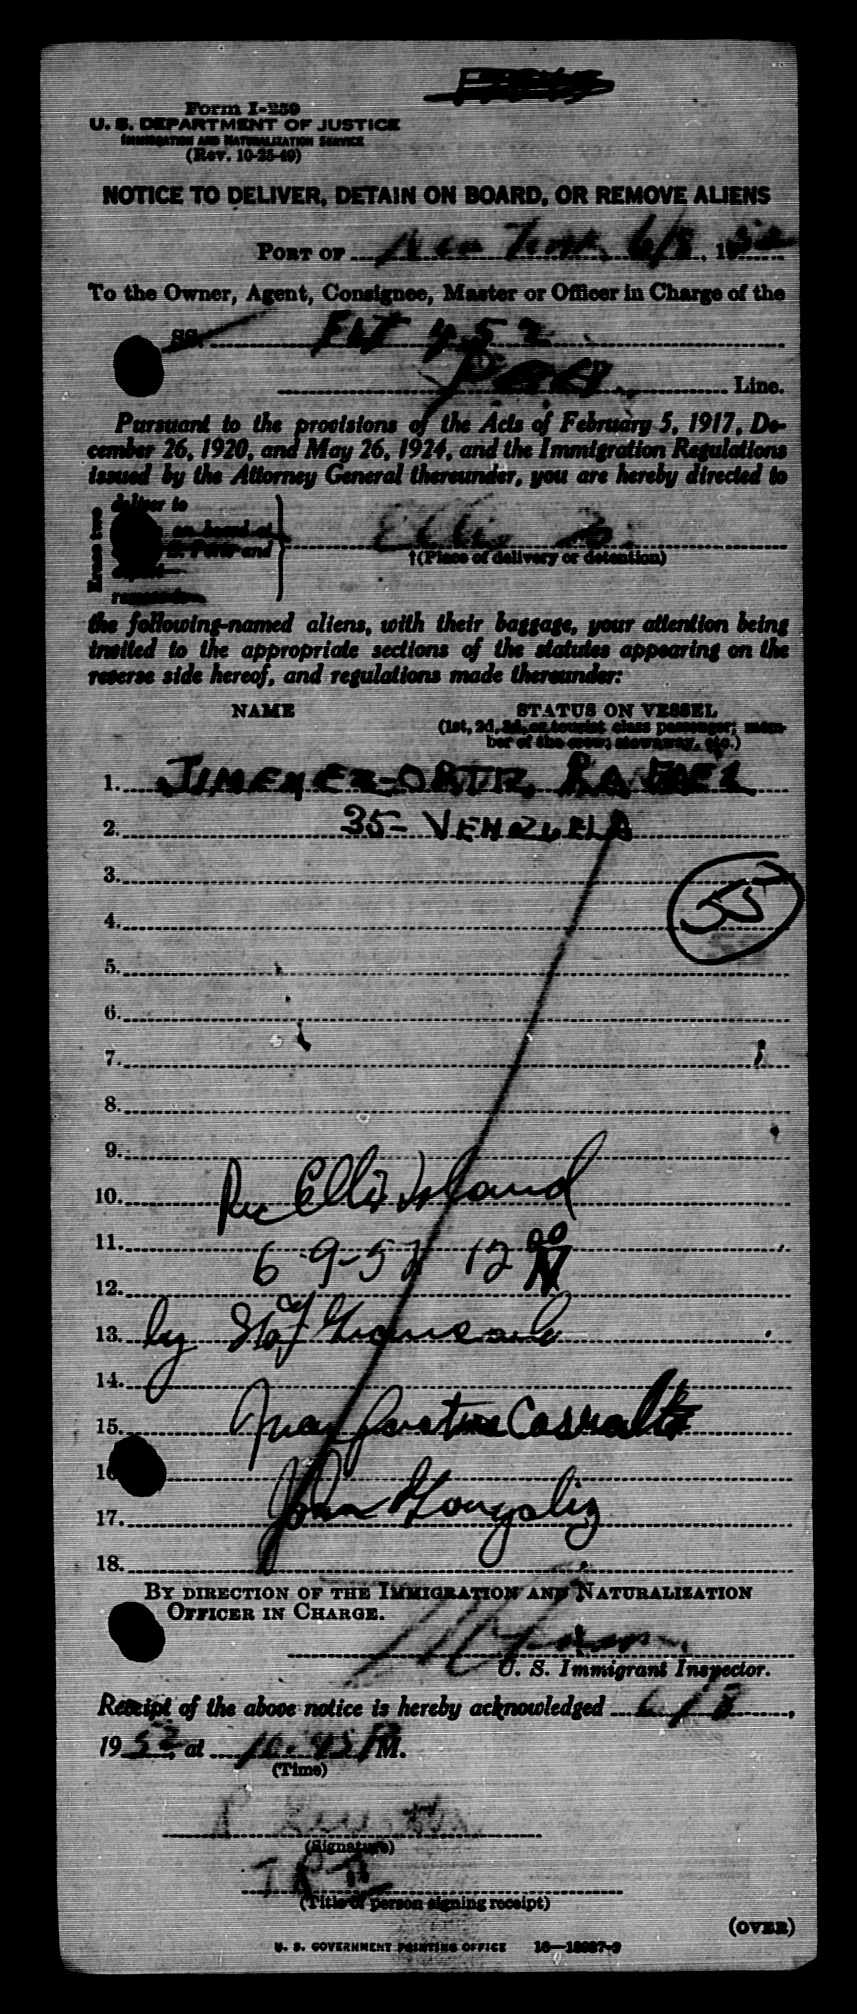 Form I-259
U. S. DEPARTMENT OF JUSTICE
IMMIGRATION AND NATURALIZATION SERVICE
(Rev. 10-25-49)
NOTICE TO DELIVER, DETAIN ON BOARD, OR REMOVE ALIENS
PORT OF New York, 6/8, 1952
To the Owner, Agent, Consignee, Master or Officer in Charge of the
SS. FLT 452
Line.
Pursuant to the provisions of the Acts of February 5, 1917, De-
cember 26, 1920, and May 26, 1924, and the Immigration Regulations
issued by the Attorney General thereunder, you are hereby directed to
deliver to
Erase two
on board at
and
Ellis Is.
†(Place of delivery or detention)
the following-named aliens, with their baggage, your attention being
invited to the appropriate sections of the statutes appearing on the
reverse side hereof, and regulations made thereunder:
NAME STATUS ON VESSEL
(1st, 2d, 3d, or tourist class passenger; mem-
ber of the crew; stowaway, etc.)
1. JIMENEZ-ORTIZ, RAFAEL
2. 35- VENZUELA
3.
55
4.
5.
6.
7.
8.
9.
10. Rec Ellis Island
11.
6-9-52 12 00 N
12.
13. by
14.
15. Juan
16
17. John
18.
BY DIRECTION OF THE IMMIGRATION AND NATURALIZATION
OFFICER IN CHARGE.
U. S. Immigrant Inspector.
Receipt of the above notice is hereby acknowledged 6/8,
1952, at 10:45 PM.
(Time)
(Signature)
(Title of person signing receipt)
(OVER)
U. S. GOVERNMENT PRINTING OFFICE